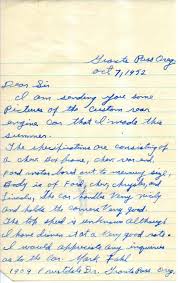 Grants Pass Oreg.
Oct 7, 1952
Dear Sir
I am sending you some
Pictures of the Custom rear
engine Car that I made this
summer.
The specifications are consisting of
a chev frame, chev rear end,
Ford motor bored out to mercury size,
Body is of Ford, chev, chrysler, and
Lincoln, the car handles very nicely
and holds the corners very good.
The top speed is unknown although
I have driven it at a very good rate.
I would appreciate any inquiries
as to the Car. Mark Fahl
1909 Dr. Grants Pass Oreg.